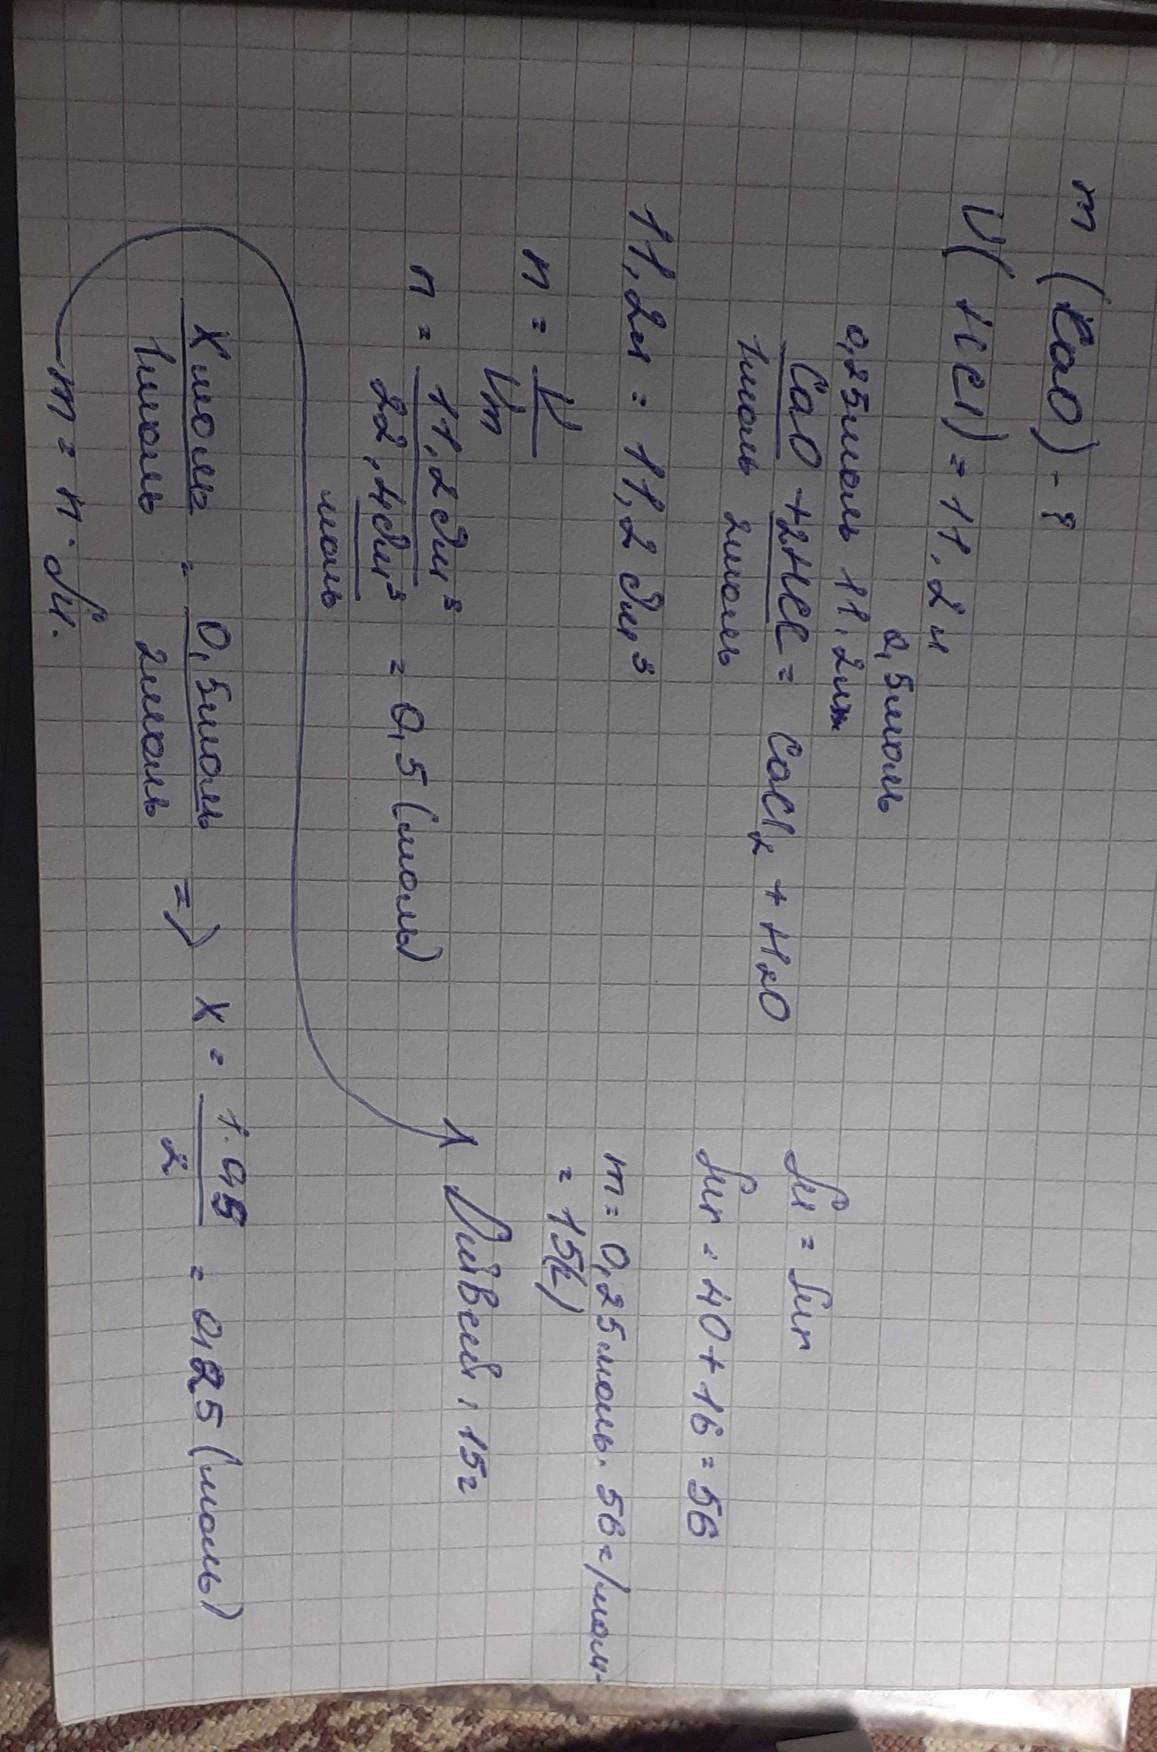 m (CaO) - ?
V(HCl) = 11,2л
0,5моль
0,25моль 11,2л
CaO + 2HCl = CaCl₂ + H₂O
1моль 2моль
11,2л = 11,2дм³
n = V/Vm
n = 11,2дм³/22,4дм³/моль = 0,5 (моль)
Xмоль/1моль = 0,5моль/2моль => X = 1·0,5/2 = 0,25 (моль)
m = n · M.
M = Mr
Mr = 40 + 16 = 56
m = 0,25моль · 56г/моль
= 15(г)
: 15г